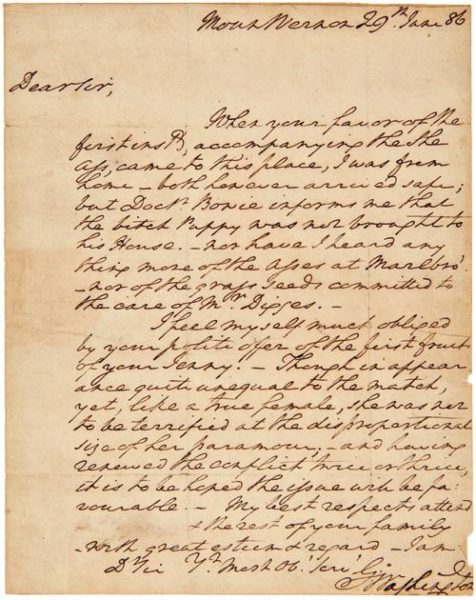 Mount Vernon 29th. June 86
Dear Sir,
When your favor of the
first inst., accompanying the she
ass, came to this place, I was from
home – both however arrived safe;
but Doctr. Bowie informs me that
the bitch Puppy was not brought to
his House. – nor have I heard any
thing more of the asses at Marlbro'
– nor of the grass seeds committed to
the care of Mr. Digges. –
I feel myself much obliged
by your polite offer of the first fruit
of your Jenny. – Though in appear
ance quite unequal to the match,
yet, like a true female, she was not
to be terrified at the disproportional
size of her paramour; – and having
renewed the conflict twice or thrice
it is to be hoped the issue will be fa-
vourable. – My best respects attend
& the rest of your family
– with great esteem & regard – I am
Dr. Sir Yr. Most Ob. Serv.
Go. Washington